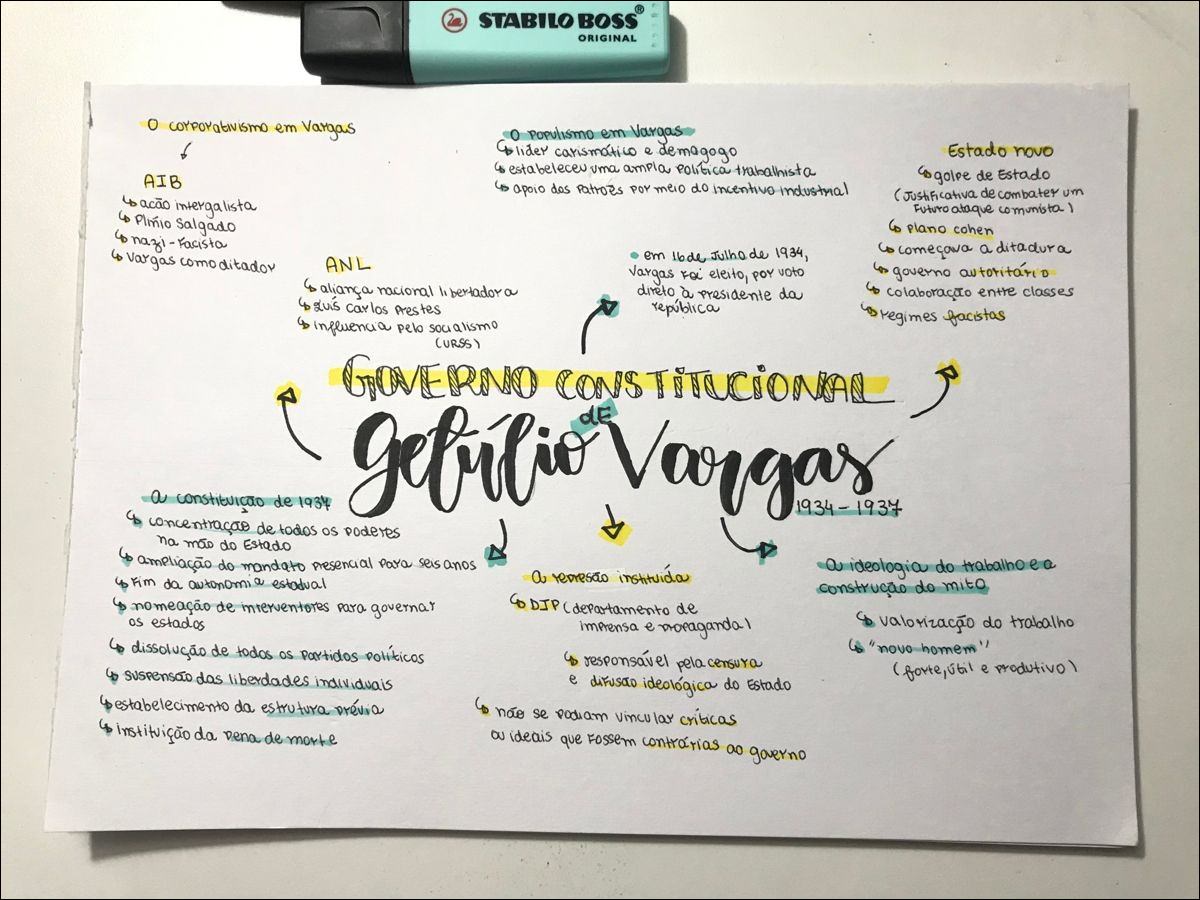 STABILO BOSS®
ORIGINAL
O corporativismo em Vargas
AIB
ação intergalista
Plínio Salgado
nazi-facista
Vargas como ditador
ANL
aliança nacional libertadora
Luís Carlos Prestes
influencia pelo socialismo
(URSS)
O populismo em Vargas
líder carismático e demagogo
estabeleceu uma ampla política trabalhista
apoio dos patrões por meio do incentivo industrial
• em 16 de julho de 1934,
Vargas foi eleito, por voto
direto à presidente da
república
Estado novo
golpe de Estado
(justificativa de combater um
futuro ataque comunista)
plano cohen
começava a ditadura
governo autoritário
colaboração entre classes
regimes facistas
GOVERNO CONSTITUCIONAL
de
Getúlio Vargas
1934-1937
a constituição de 1937
concentração de todos os poderes
na mão do Estado
ampliação do mandato presencial para seis anos
fim da autonomia estadual
nomeação de interventores para governar
os estados
dissolução de todos os partidos políticos
suspensão das liberdades individuais
estabelecimento da estrutura prévia
instituição da pena de morte
a represão instituída
DIP (departamento de
imprensa e propaganda)
responsável pela censura
e difusão ideológica do Estado
não se podiam vincular críticas
ou ideais que fossem contrárias ao governo
a ideologia do trabalho e a
construção do mito
valorização do trabalho
"novo homem"
(forte, útil e produtivo)